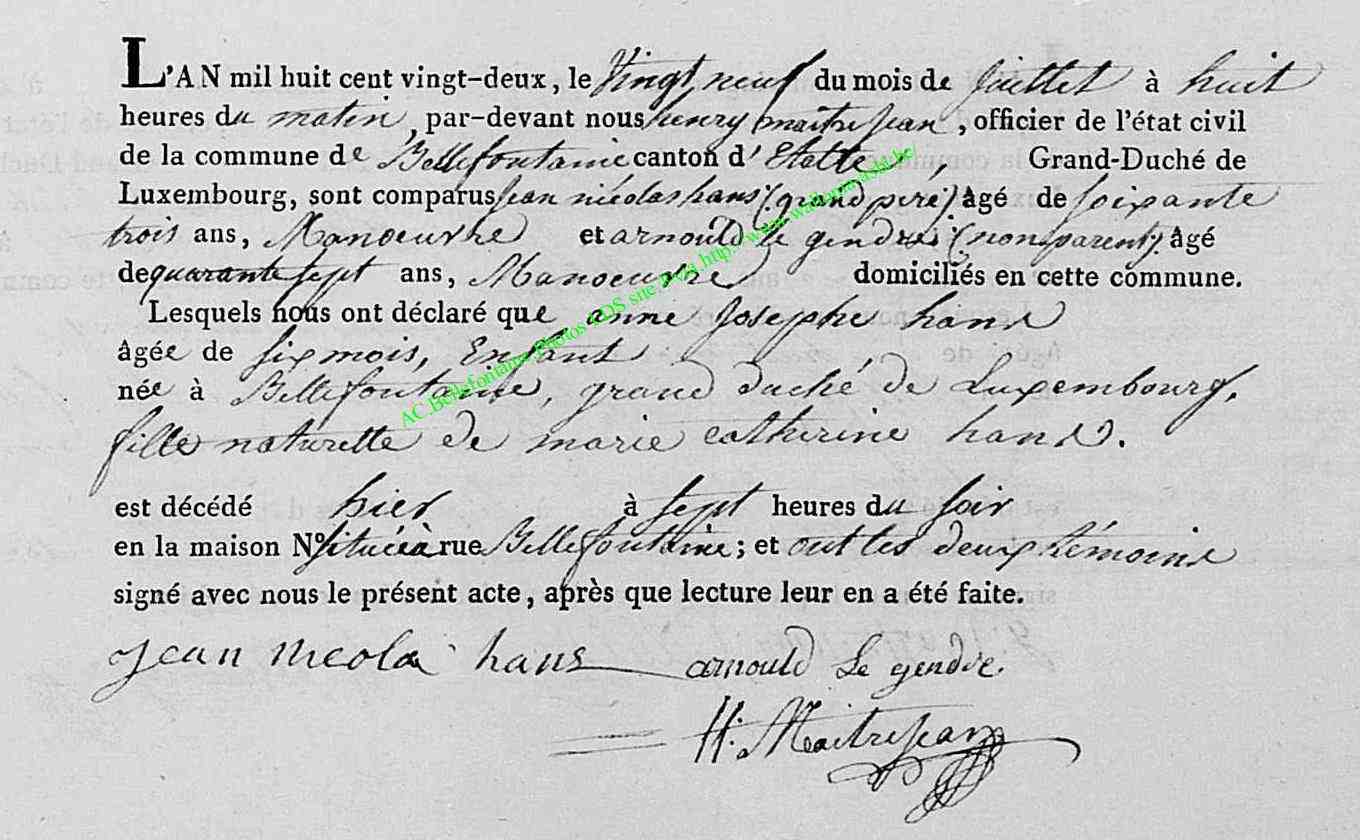 L'AN mil huit cent vingt-deux, le Vingt neuf du mois de Juillet à huit
heures du matin, par-devant nous henry maitrejean, officier de l'état civil
de la commune de Bellefontaine canton d'Etalle, Grand-Duché de
Luxembourg, sont comparus jean nicolas hans (grand pere) âgé de soixante
trois ans, Manoeuvre et arnould le gendre (non parent) âgé
de quarante sept ans, Manoeuvre domiciliés en cette commune.
Lesquels nous ont déclaré que anne Josephe hans
âgée de six mois, Enfant
née à Bellefontaine, grand duché de Luxembourg,
fille naturelle de marie catherine hans.
est décédé hier à sept heures du soir
en la maison N° située à rue Bellefontaine; et ont les deux témoins
signé avec nous le présent acte, après que lecture leur en a été faite.
jean nicola hans arnould Le gendre.
H. Maitrejean
AC.Bellefontaine Photos LDS site blog http://www.wallonia-asbl.be/